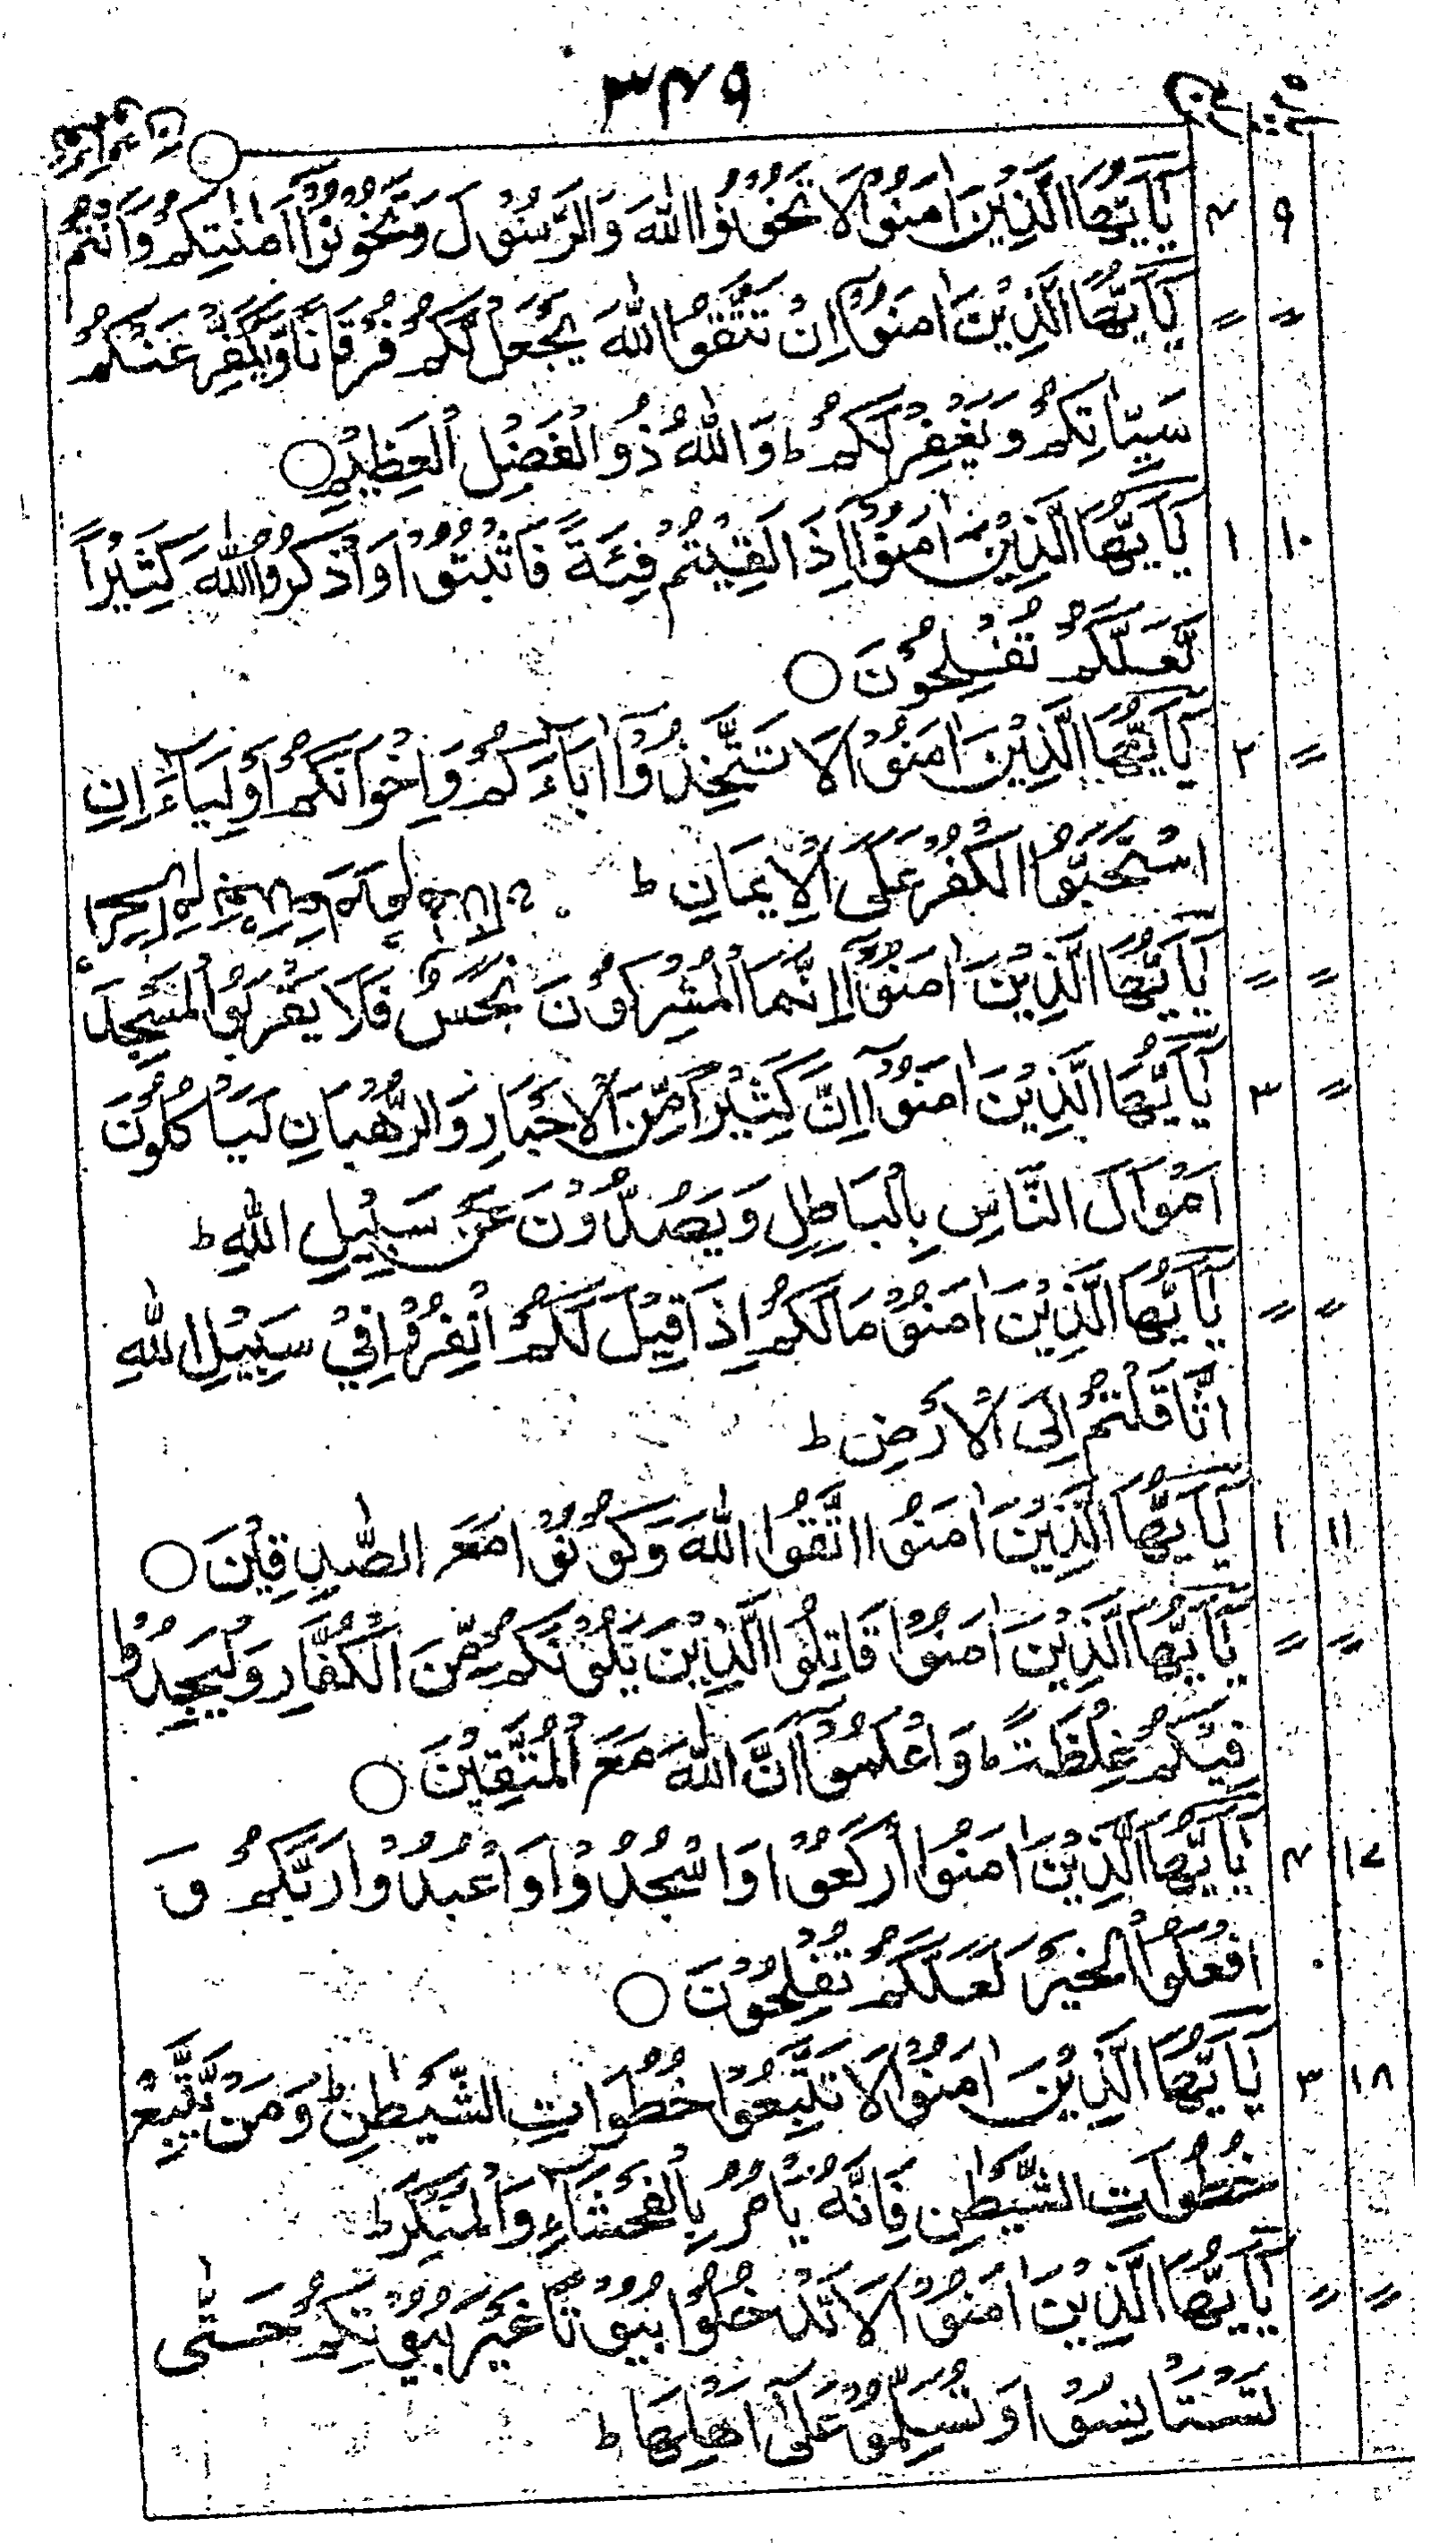 ۳۴۹
يٰٓاَيُّهَا الَّذِيْنَ اٰمَنُوْا لَا تَخُوْنُوا اللّٰهَ وَالرَّسُوْلَ وَتَخُوْنُوْٓا اَمٰنٰتِكُمْ وَاَنْتُمْ ۴ ۹
يٰٓاَيُّهَا الَّذِيْنَ اٰمَنُوْٓا اِنْ تَتَّقُوا اللّٰهَ يَجْعَلْ لَّكُمْ فُرْقَانًا وَّيُكَفِّرْ عَنْكُمْ = =
سَيِّاٰتِكُمْ وَيَغْفِرْ لَكُمْ ط وَاللّٰهُ ذُو الْفَضْلِ الْعَظِيْمِ ○
يٰٓاَيُّهَا الَّذِيْنَ اٰمَنُوْٓا اِذَا لَقِيْتُمْ فِئَةً فَاثْبُتُوْا وَاذْكُرُوا اللّٰهَ كَثِيْرًا ۱ ۱۰
لَّعَلَّكُمْ تُفْلِحُوْنَ ○
يٰٓاَيُّهَا الَّذِيْنَ اٰمَنُوْا لَا تَتَّخِذُوْٓا اٰبَآءَكُمْ وَاِخْوَانَكُمْ اَوْلِيَآءَ اِنِ ۲ =
اسْتَحَبُّوا الْكُفْرَ عَلَى الْاِيْمَانِ ط
يٰٓاَيُّهَا الَّذِيْنَ اٰمَنُوْٓا اِنَّمَا الْمُشْرِكُوْنَ نَجَسٌ فَلَا يَقْرَبُوا الْمَسْجِدَ = =
يٰٓاَيُّهَا الَّذِيْنَ اٰمَنُوْٓا اِنَّ كَثِيْرًا مِّنَ الْاَحْبَارِ وَالرُّهْبَانِ لَيَاْكُلُوْنَ ۳ =
اَمْوَالَ النَّاسِ بِالْبَاطِلِ وَيَصُدُّوْنَ عَنْ سَبِيْلِ اللّٰهِ ط
يٰٓاَيُّهَا الَّذِيْنَ اٰمَنُوْا مَا لَكُمْ اِذَا قِيْلَ لَكُمُ انْفِرُوْا فِيْ سَبِيْلِ اللّٰهِ = =
اثَّاقَلْتُمْ اِلَى الْاَرْضِ ط
يٰٓاَيُّهَا الَّذِيْنَ اٰمَنُوا اتَّقُوا اللّٰهَ وَكُوْنُوْا مَعَ الصّٰدِقِيْنَ ○ ۱ ۱۱
يٰٓاَيُّهَا الَّذِيْنَ اٰمَنُوْا قَاتِلُوا الَّذِيْنَ يَلُوْنَكُمْ مِّنَ الْكُفَّارِ وَلْيَجِدُوْا = =
فِيْكُمْ غِلْظَةً ط وَاعْلَمُوْٓا اَنَّ اللّٰهَ مَعَ الْمُتَّقِيْنَ ○
يٰٓاَيُّهَا الَّذِيْنَ اٰمَنُوا ارْكَعُوْا وَاسْجُدُوْا وَاعْبُدُوْا رَبَّكُمْ وَ ۴ ۱۷
افْعَلُوا الْخَيْرَ لَعَلَّكُمْ تُفْلِحُوْنَ ○
يٰٓاَيُّهَا الَّذِيْنَ اٰمَنُوْا لَا تَتَّبِعُوْا خُطُوَاتِ الشَّيْطٰنِ ط وَمَنْ يَّتَّبِعْ ۳ ۱۸
خُطُوَاتِ الشَّيْطٰنِ فَاِنَّهٗ يَاْمُرُ بِالْفَحْشَآءِ وَالْمُنْكَرِ ط
يٰٓاَيُّهَا الَّذِيْنَ اٰمَنُوْا لَا تَدْخُلُوْا بُيُوْتًا غَيْرَ بُيُوْتِكُمْ حَتّٰى = =
تَسْتَاْنِسُوْا وَتُسَلِّمُوْا عَلٰٓى اَهْلِهَا ط